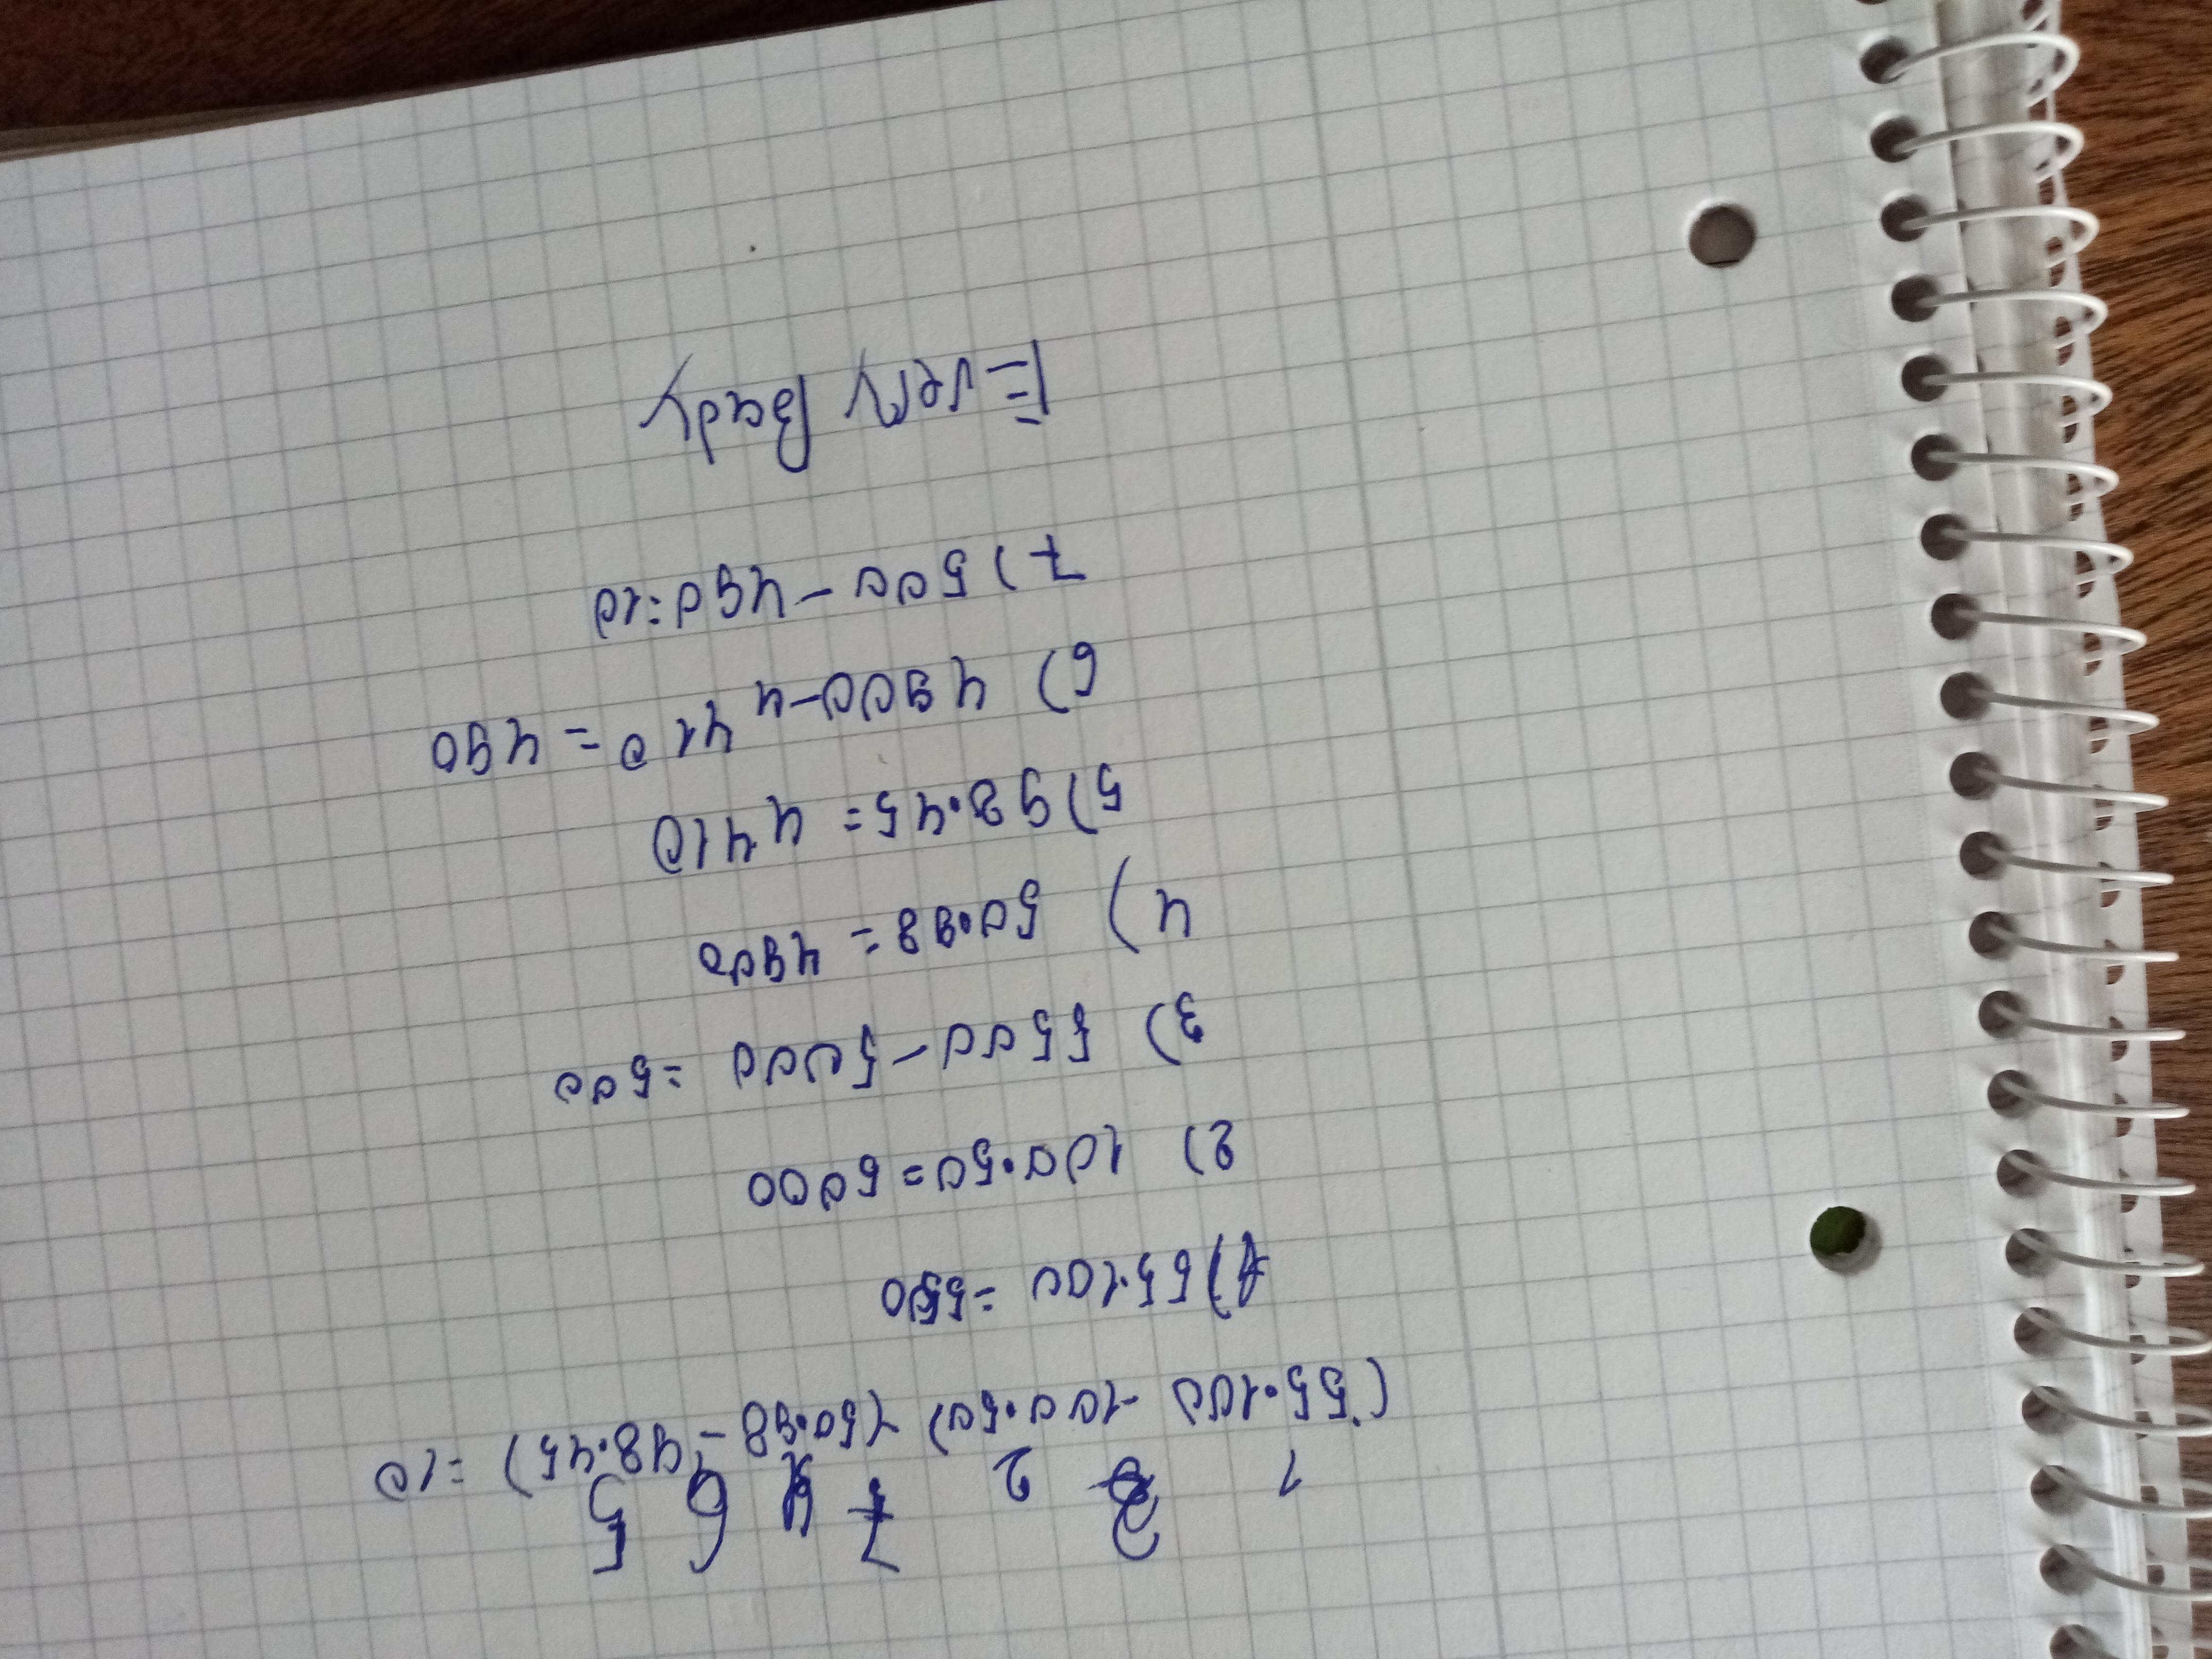 1 3 2 7 4 6 5
(55·100 -100·50) - (50·98 - 98·45) =10
1) 55·100 =5500
2) 100·50=5000
3) 5500-5000 =500
4) 50·98 = 4900
5) 98·45= 4410
6) 4900-4410 = 490
7) 500 -490=10
Every Body